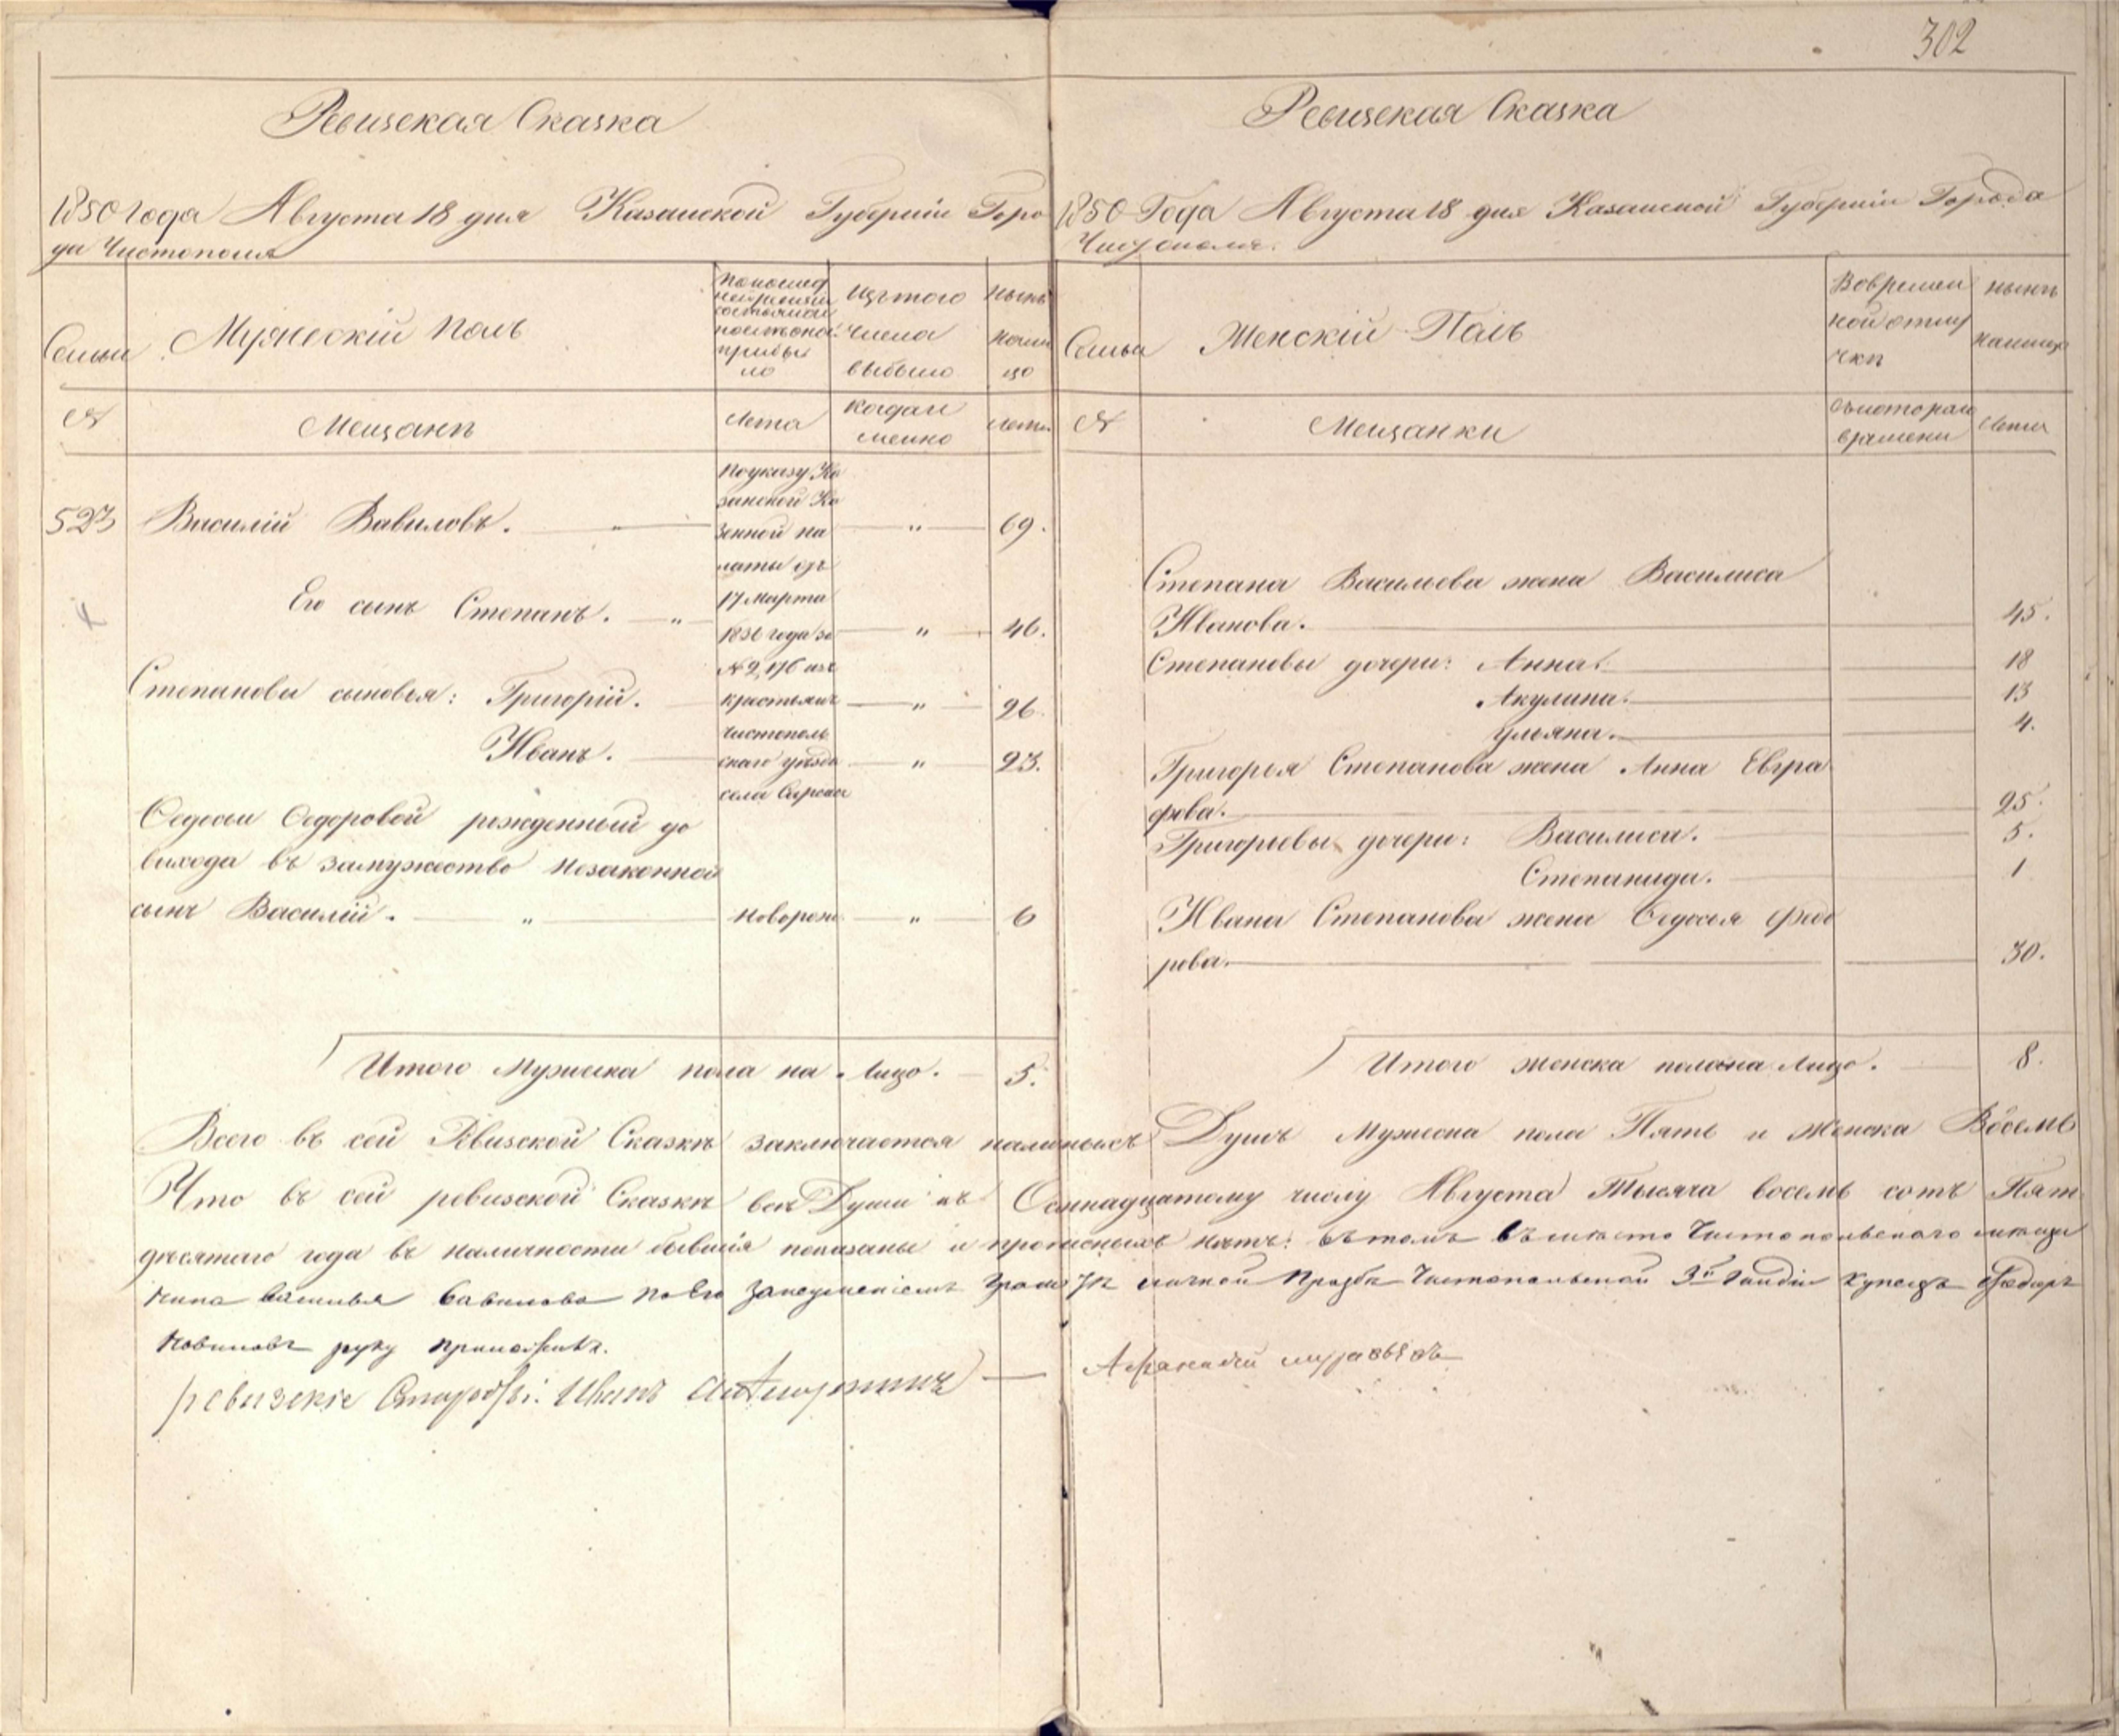 302
Ревизская Сказка
1850 года Августа 18 дня Казанской Губерніи Горо
да Чистополя
Семьи
Мужескій полъ
По послед
ней ревизіи
состояло и
после оной
прибы
ло
Изъ того
числа
выбыло
Ныне
на ли
цо
№
Мещане
Лета
Когда и
менно
Лета
523 Василій Вавиловъ. " " 69.
По указу Ка
занской Ка
зенной па
латы отъ
17 марта
1836 года за
№ 2,176 изъ
крестьянъ
Чистополь
скаго уезда
села
Его сынъ Степанъ. " " 46.
Степановы сыновья: Григорій. " 26.
Иванъ. " 23.
Федосьи Федоровой рожденный до
выхода въ замужество незаконной
сынъ Василій. " новорож. " 6
Итого Мужеска пола на Лицо. 5.
Ревизская Сказка
1850 Года Августа 18 дня Казанской Губерніи Города
Чистополя.
Семьи
Женскій Полъ
Во времен
ной отлу
чке
ныне
налицо
№
Мещанки
Съ котораго
времени
Лета
Степана Васильева жена Василиса
Иванова. 45.
Степановы дочери: Анна. 18
Акулина. 13
Ульяна. 4.
Григорья Степанова жена Анна Евгра
фова. 25.
Григорьевы дочери: Василиса. 5.
Степанида. 1
Ивана Степанова жена Федосья Федо
рова. 30.
Итого женска пола на Лицо. 8.
Всего въ сей Ревизской Сказке заключается наличныхъ Душъ Мужеска пола Пять и Женска Восемь
Что въ сей ревизской Сказке все Души къ Осмнадцатому числу Августа Тысяча восемь сотъ Пят
десятаго года въ наличности бывшія показаны и прописныхъ нетъ: въ томъ въ место Чистопольскаго меща
нина василья Вавилова по Его неуменію Граmоте личной Прозбе Чистопольской 3й Гилдіи купецъ Федоръ
руку приложилъ.
ревизскіе Старосты: Иванъ
Афанасий муравьевъ